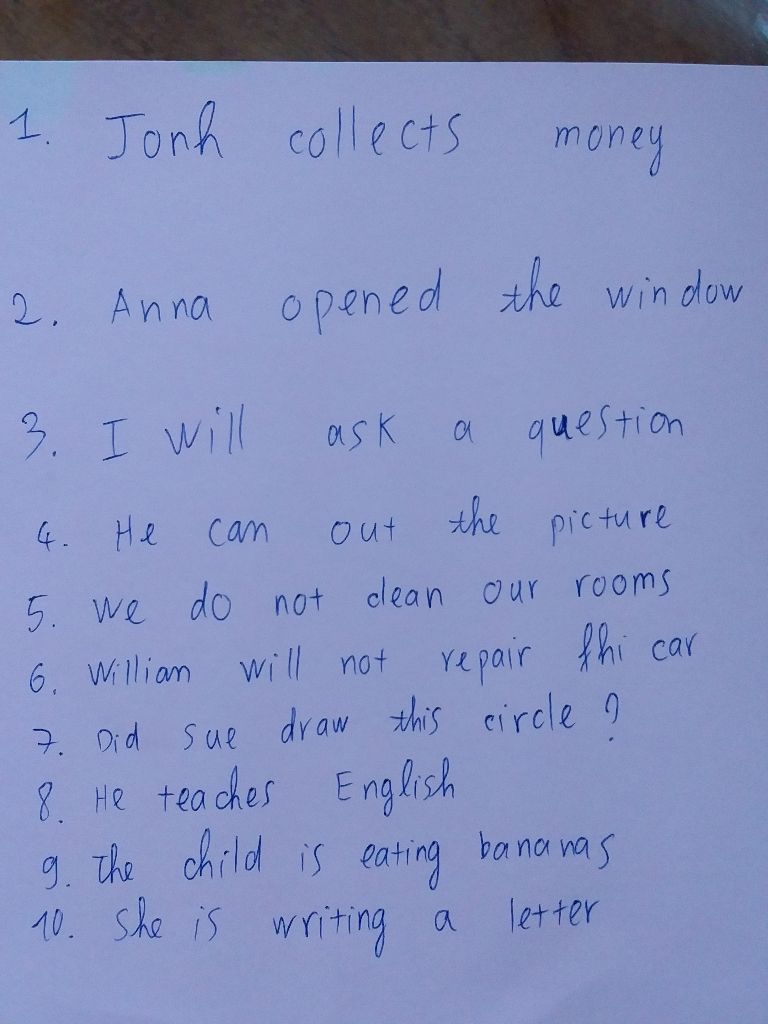 1. Jonh collects money
2. Anna opened the window
3. I will ask a question
4. He can out the picture
5. We do not clean our rooms
6. Willian will not repair thi car
7. Did Sue draw this circle ?
8. He teaches English
9. The child is eating bananas
10. She is writing a letter